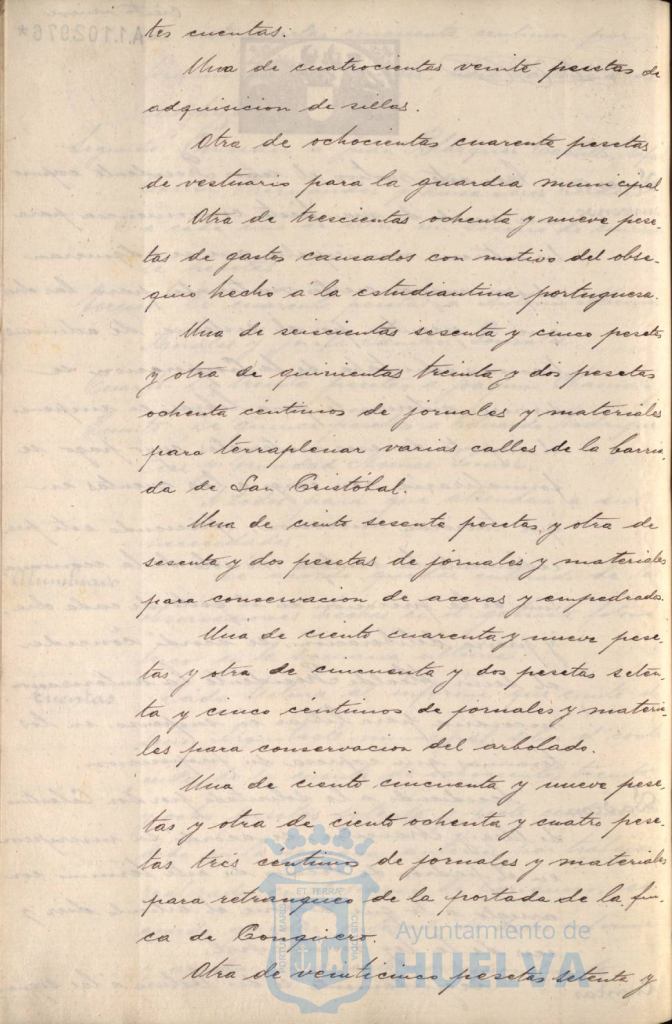 A.1.102.976*
tes cuentas:
Una de cuatrocientas veinte pesetas de
adquisicion de sillas.
Otra de ochocientas cuarenta pesetas
de vestuario para la guardia municipal
Otra de trescientas ochenta y nueve pese-
tas de gastos causados con motivo del obse-
quio hecho á la estudiantina portuguesa.
Una de seiscientas sesenta y cinco pesetas
y otra de quinientas treinta y dos pesetas
ochenta céntimos de jornales y materiales
para terraplenar varias calles de la barria-
da de San Cristóbal.
Una de ciento sesenta pesetas y otra de
sesenta y dos pesetas de jornales y materiales
para conservacion de aceras y empedrados.
Una de ciento cuarenta y nueve pese-
tas y otra de cincuenta y dos pesetas seten-
ta y cinco céntimos de jornales y materia-
les para conservacion del arbolado.
Una de ciento cincuenta y nueve pese-
tas y otra de ciento ochenta y cuatro pese-
tas tres céntimos de jornales y materiales
para retranqueo de la portada de la fin-
ca de Conquero.
Otra de veinticinco pesetas setenta y
PORTUS MARIS ET TERRAE CUSTODIA
Ayuntamiento de
HUELVA